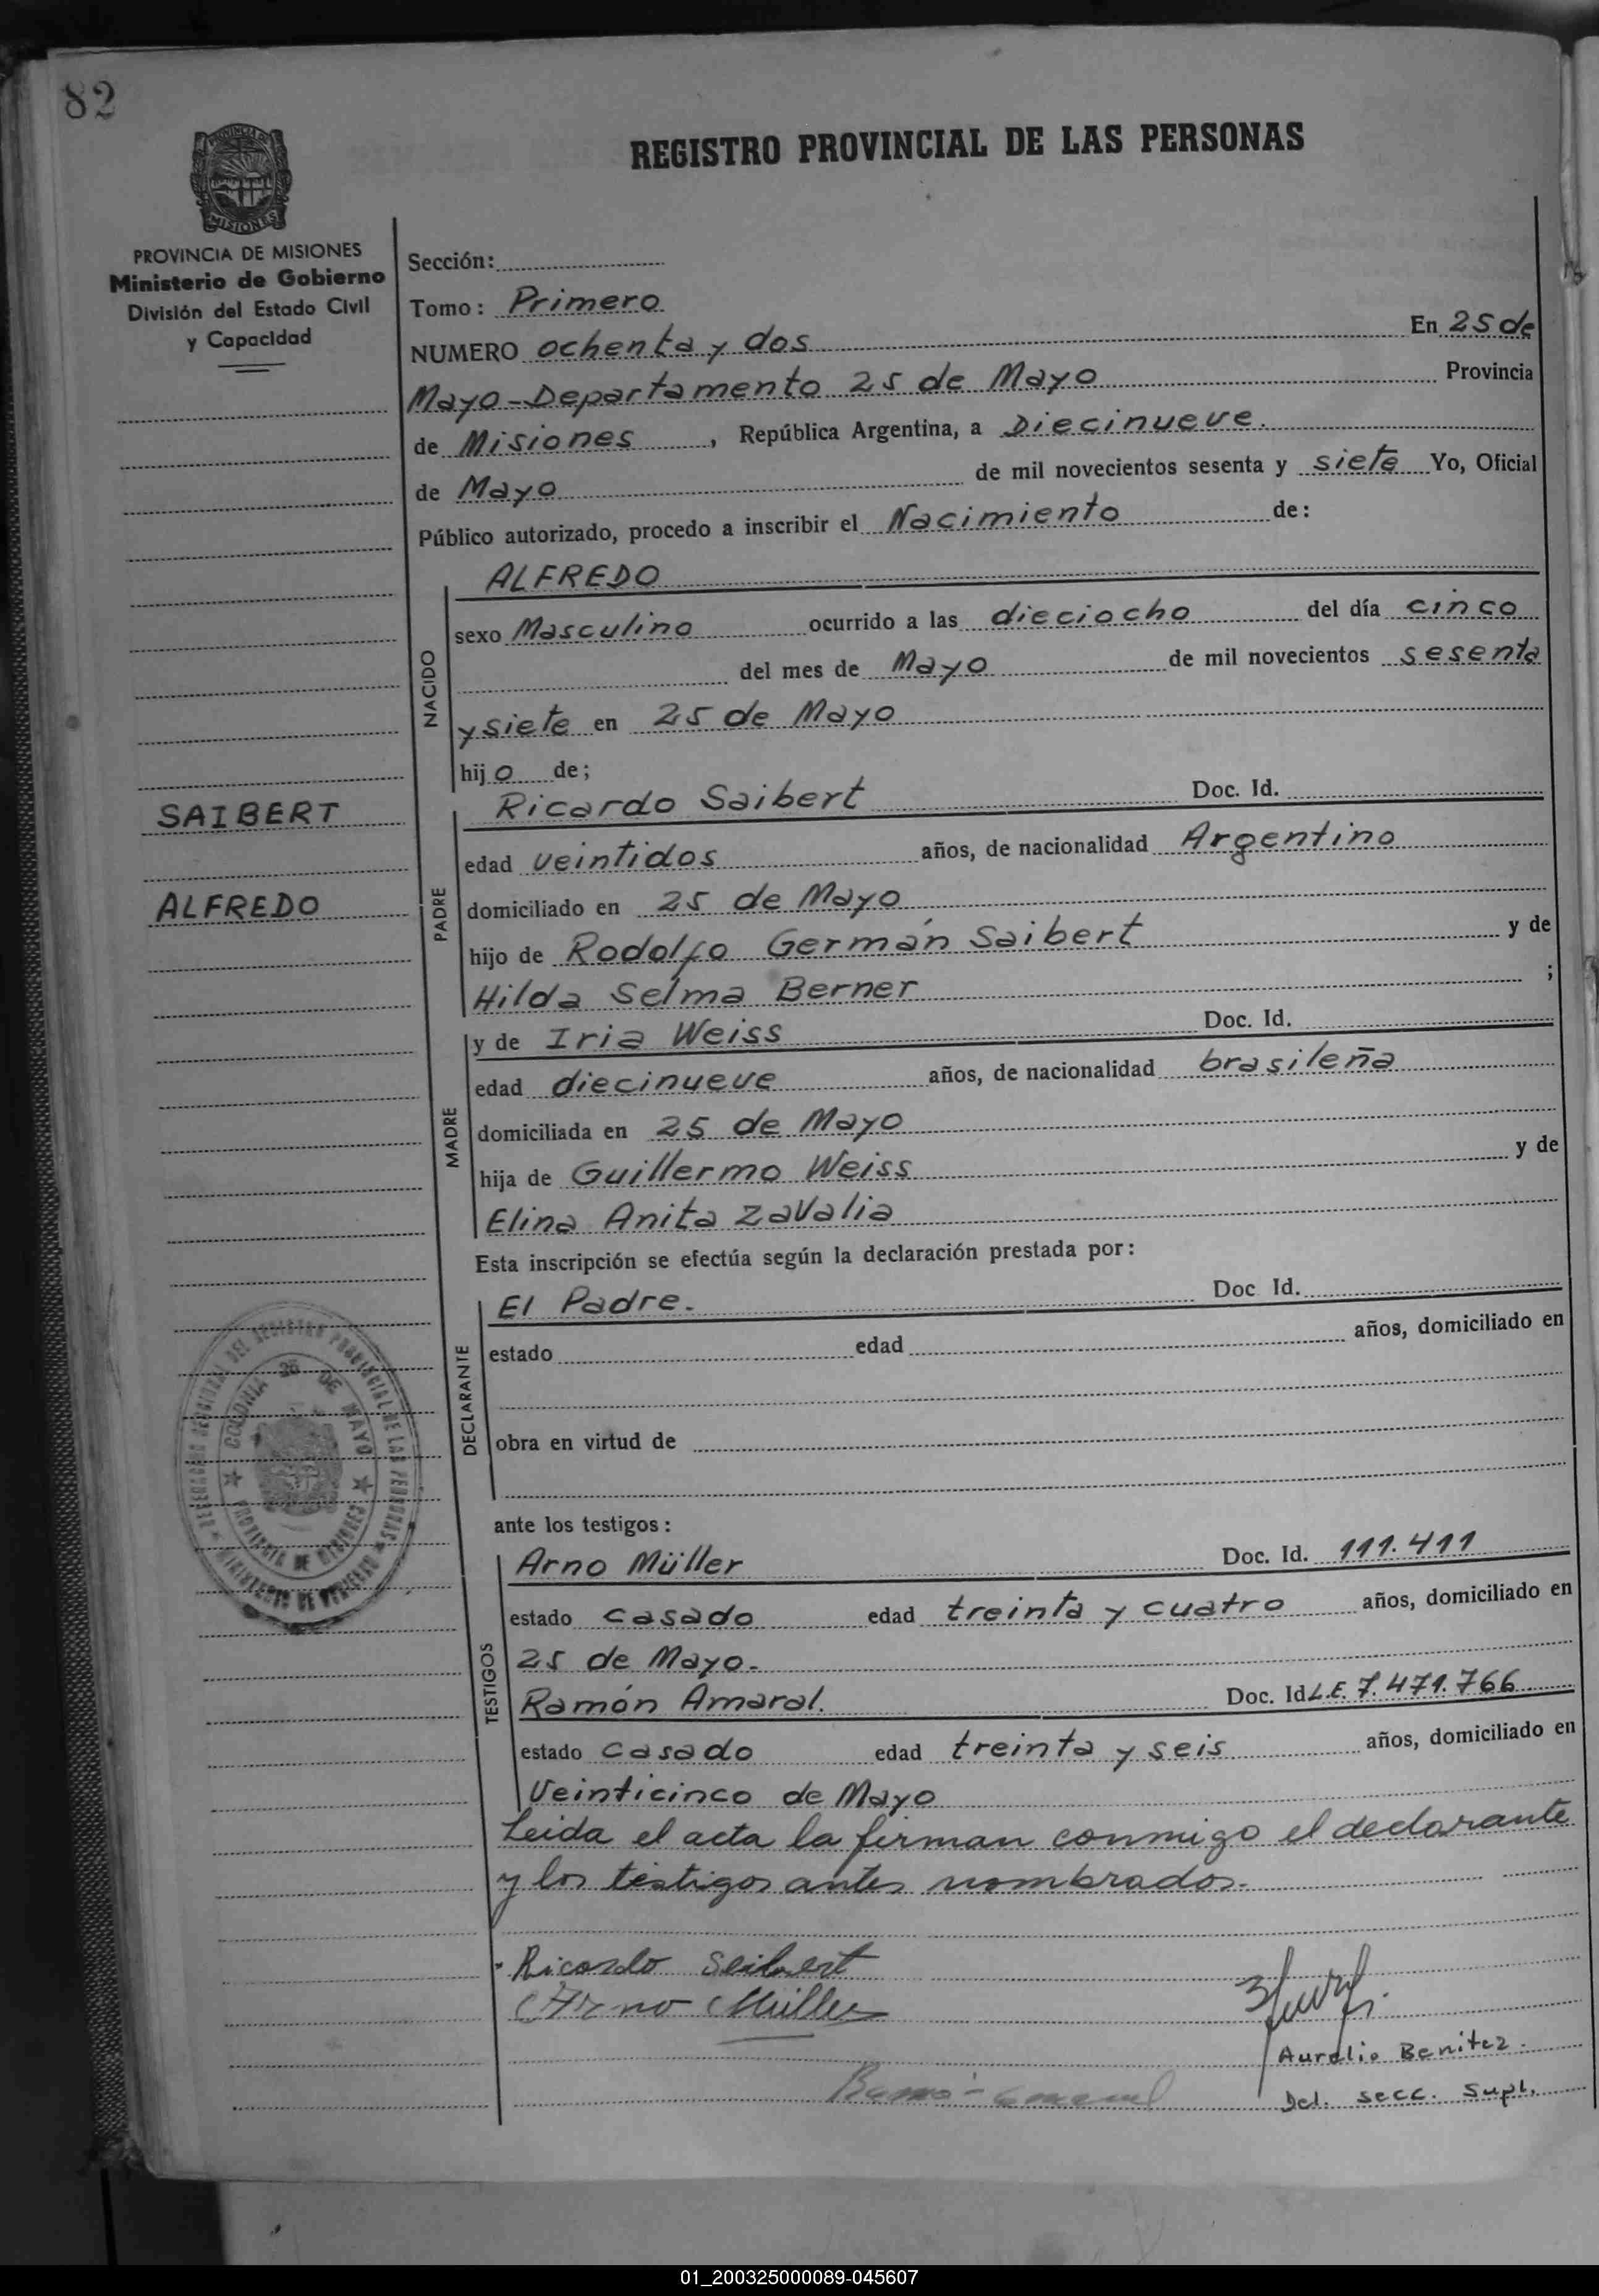 82
REGISTRO PROVINCIAL DE LAS PERSONAS
MISIONES
PROVINCIA DE MISIONES
Ministerio de Gobierno
División del Estado Civil
y Capacidad
Sección:
Tomo: Primero
NUMERO ochenta y dos En 25 de
Mayo-Departamento 25 de Mayo Provincia
de Misiones, República Argentina, a Diecinueve.
de Mayo de mil novecientos sesenta y siete Yo, Oficial
Público autorizado, procedo a inscribir el Nacimiento de:
NACIDO
ALFREDO
sexo Masculino ocurrido a las dieciocho del día cinco
del mes de Mayo de mil novecientos sesenta
y siete en 25 de Mayo
hijo de;
SAIBERT
ALFREDO
PADRE
Ricardo Saibert Doc. Id.
edad veintidos años, de nacionalidad Argentino
domiciliado en 25 de Mayo
hijo de Rodolfo Germán Saibert y de
Hilda Selma Berner ;
MADRE
y de Iria Weiss Doc. Id.
edad diecinueve años, de nacionalidad brasileña
domiciliada en 25 de Mayo
hija de Guillermo Weiss y de
Elina Anita Zavalia
Esta inscripción se efectúa según la declaración prestada por:
DECLARANTE
El Padre. Doc Id.
estado edad años, domiciliado en
obra en virtud de
DEL REGISTRO PROVINCIAL DE LAS PERSONAS
MINISTERIO DE GOBIERNO
COLONIA 25 DE MAYO
PROVINCIA DE MISIONES
ante los testigos:
TESTIGOS
Arno Müller Doc. Id. 111.411
estado casado edad treinta y cuatro años, domiciliado en
25 de Mayo.
Ramón Amaral. Doc. Id L.E. 7.471.766
estado casado edad treinta y seis años, domiciliado en
Veinticinco de Mayo
Leida el acta la firman conmigo el declarante
y los testigos antes nombrados.
Ricardo Seibert
Arno Müller
Aurelio Benitez.
Del. secc. supl.
01_200325000089-045607